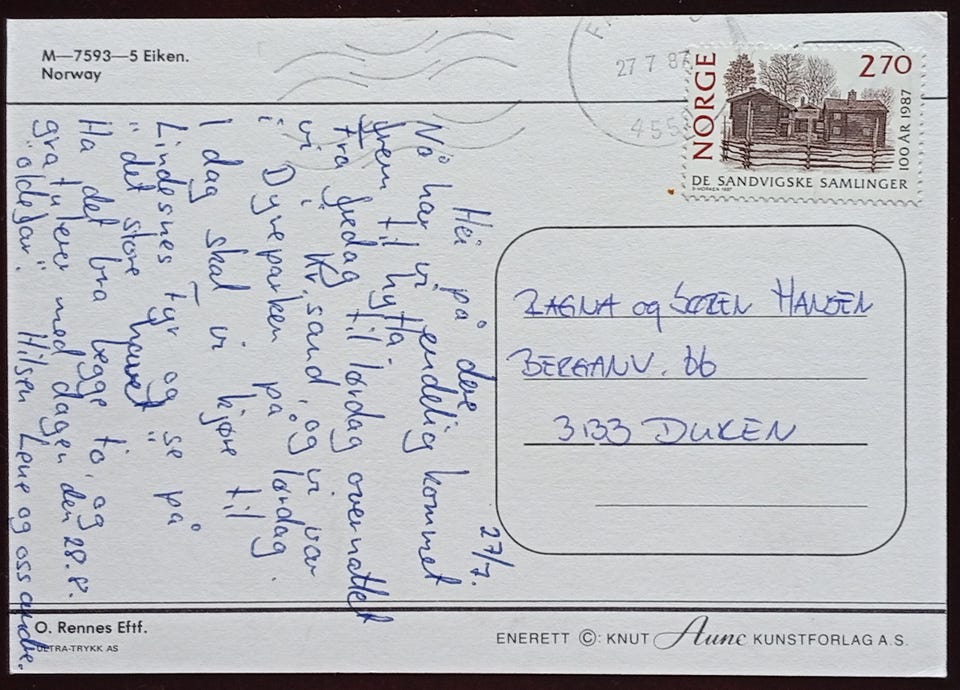 M—7593—5 Eiken.
Norway
27 7 87
NORGE
2.70
100 ÅR 1987
DE SANDVIGSKE SAMLINGER
27/7.
Hei på dere,
Nå har vi endelig kommet
frem til hytta.
Fra fredag til lørdag overnattet
vi i Kr.sand, og vi var
i Dyreparken på lørdag.
I dag skal vi kjøre til
Lindesnes Fyr og se på
"det store havet"
Ha det bra begge to, og
gratulerer med dagen den 28.8.
"oldefar". Hilsen Lene og oss andre.
RAGNA og SØREN HANSEN
BERGANV. 66
3133 DUKEN
O. Rennes Eftf.
ULTRA-TRYKK AS
ENERETT ©: KNUT Aune KUNSTFORLAG A.S.